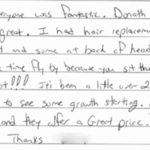 everyone was fantastic. Donath
great. I had hair replacemen
t and some at back of head
time fly by because you sit th
ot!!! It's been a little over 2
to see some growth starting.
and they offer a Great price.
Thanks